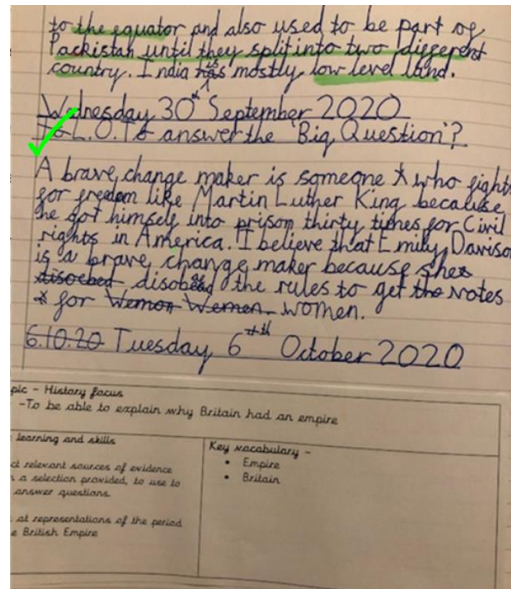 to the equator and also used to be part of
Packistan until they split into two different
country. India has mostly low level land.
Wednesday 30th September 2020
L.O. To answer the 'Big Question'?
A brave, change maker is someone * who fights
for freedom like Martin Luther King because
he got himself into prison thirty times for Civil
rights in America. I believe that Emily Davison
is a brave, change maker because she
disobeyed the rules to get the votes
* for Wemon Wemen women.
6.10.20 Tuesday 6th October 2020
pic - History focus
-To be able to explain why Britain had an empire
learning and skills
ct relevant sources of evidence
a selection provided, to use to
answer questions.
at representations of the period
e British Empire
Key vocabulary -
• Empire
• Britain